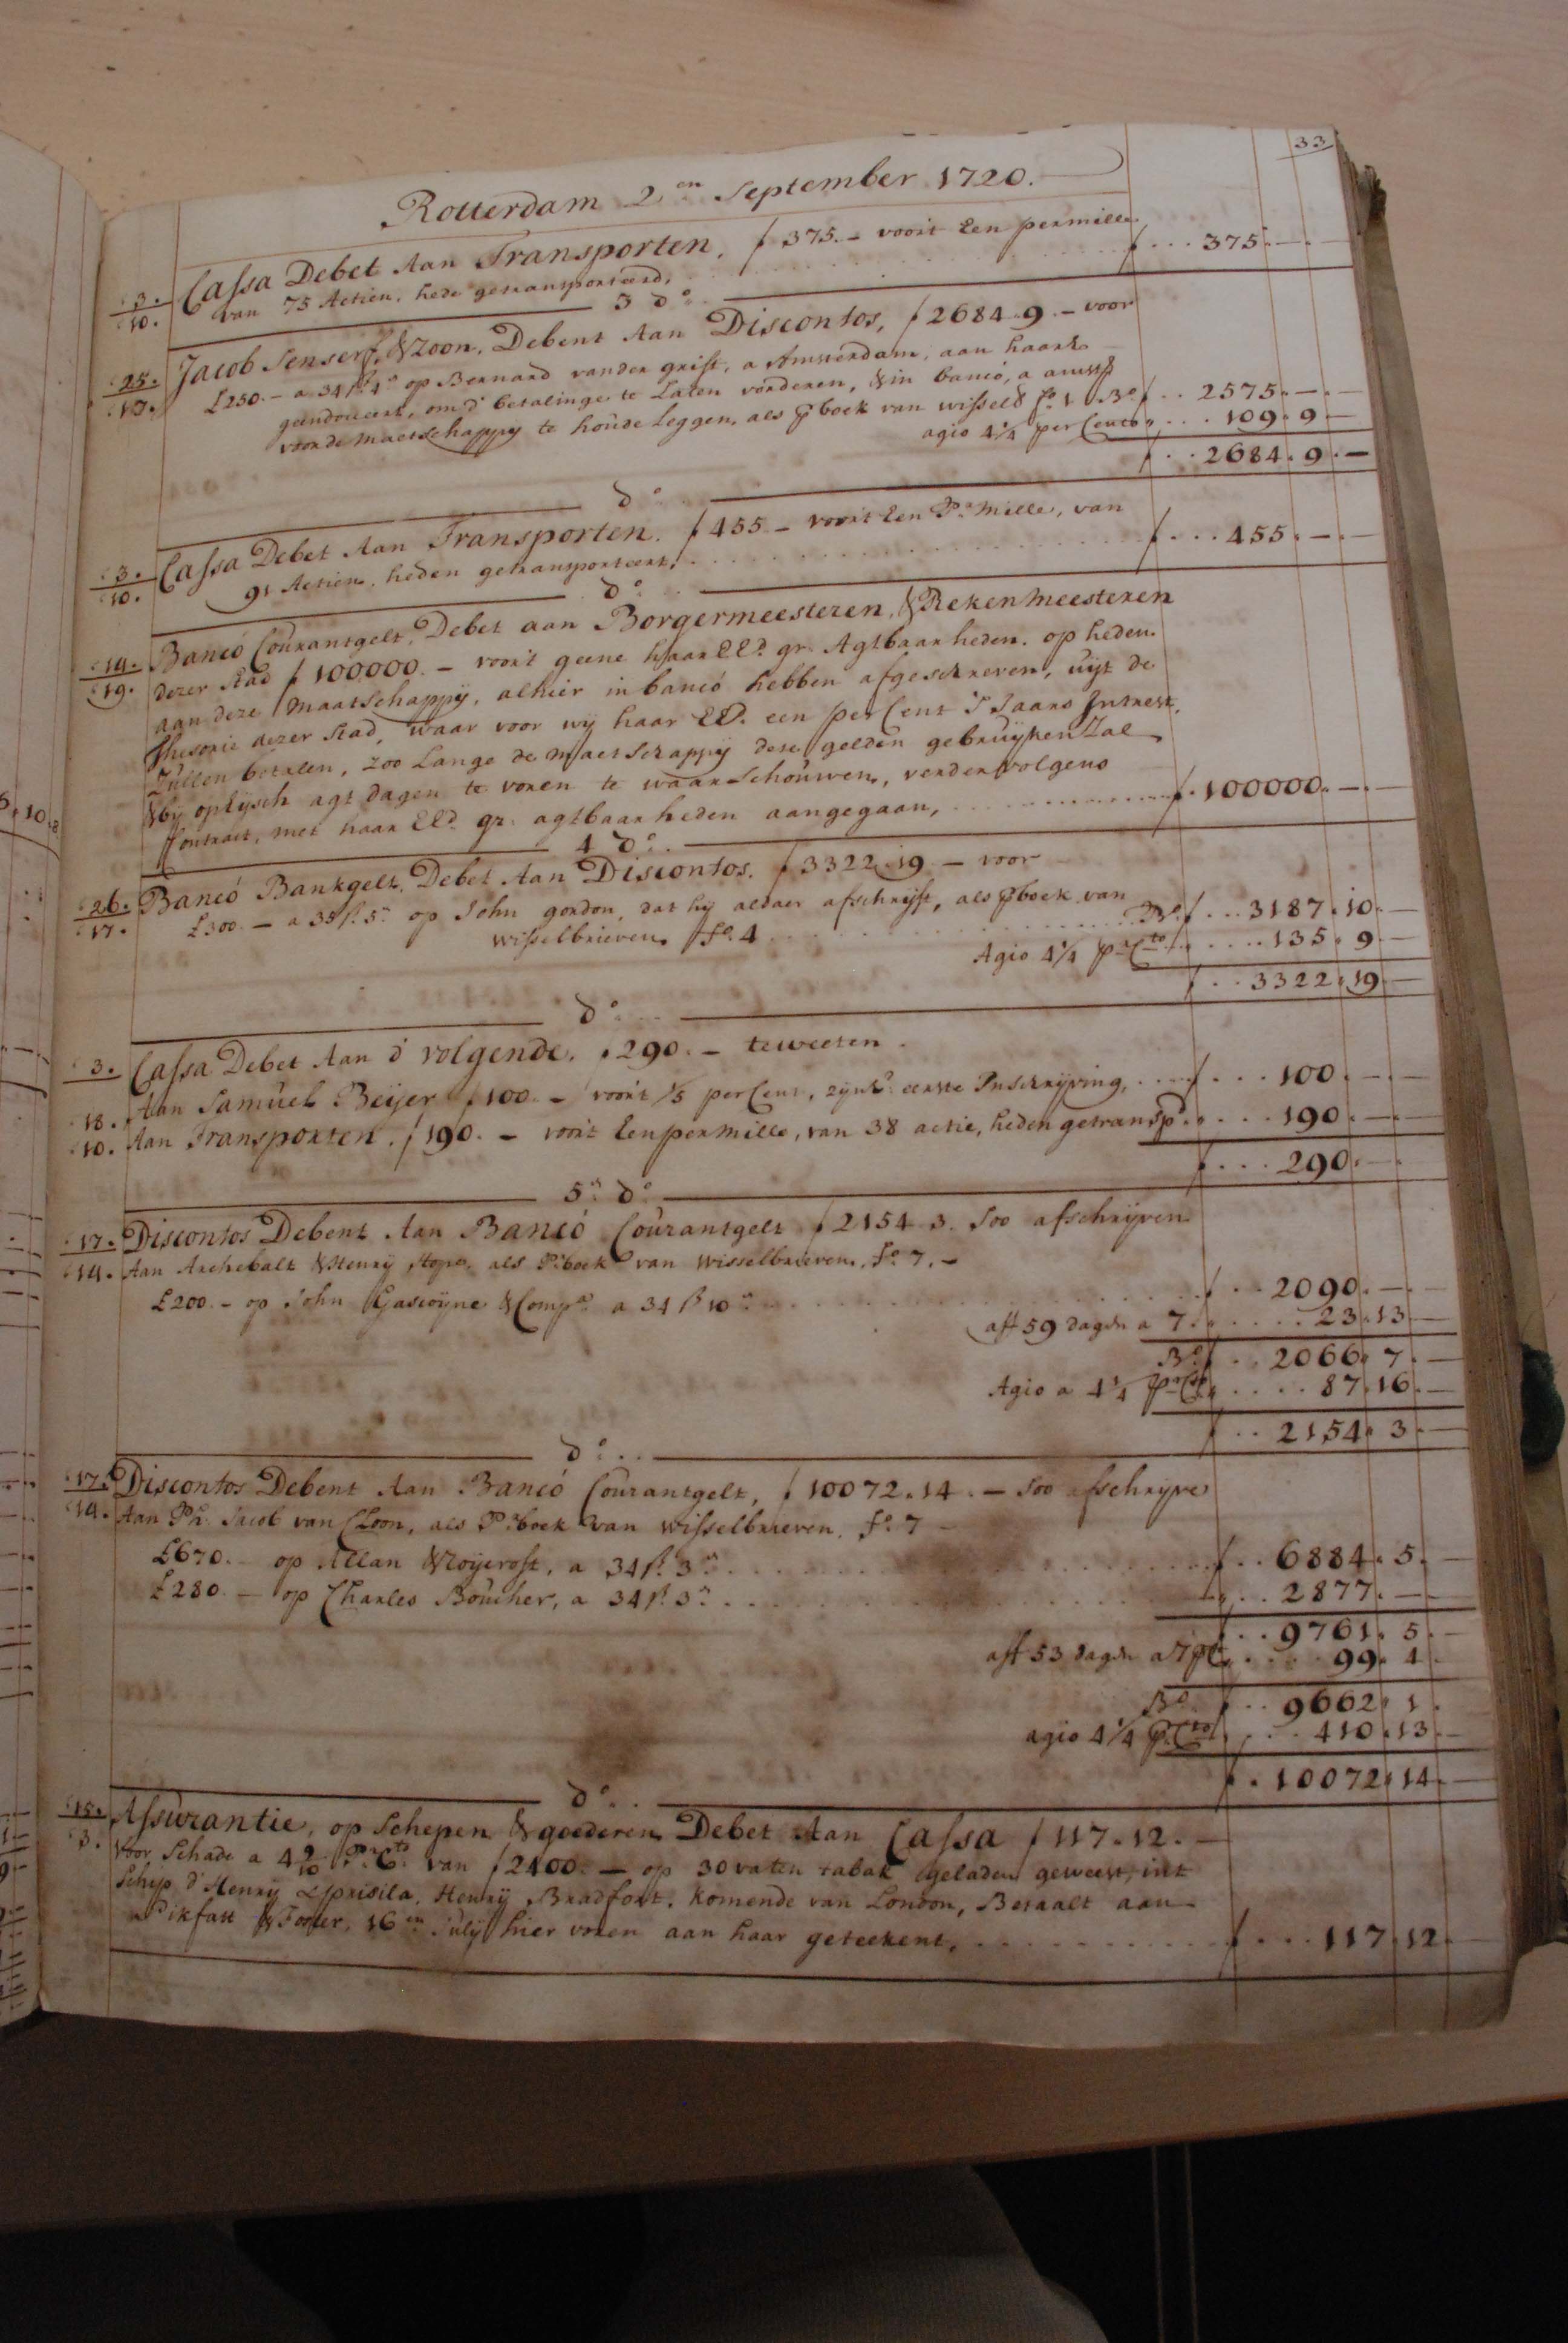 33
Rotterdam 2en September 1720.
3. Cassa Debet Aan Transporten, f 375.– voor't Een permille
10. van 75 Actien, hede getransporteerd, f 375.–
3 do
25. Jacob Senserf, & Zoon, Debent Aan Discontos, f 2684.9.– voor
17. £250.– a 34 ß 4 op Bernard vander grift, a Amsterdam, aan haar
geendorceert, om d' betalinge te Laten vorderen, & in banco, a amst
voor de maetschappy te houde Leggen, als p boek van wissels fo 1 Bo f 2575.–.–
agio 4¼ per Cento 109.9–
f 2684.9.–
do
3. Cassa Debet Aan Transporten. f 455.– voor't Een Pr mille, van
10. 91 Actien, heden getransporteert, f 455.–.–
do
14. Banco Courantgelt, Debet aan Borgermeesteren, & Rekenmeesteren
19. dezer stad f 100000.– voor't geene haar EEd. gr. Agtbaarheden. op heden
aan deze maatschappy, alhier in banco hebben afgeschreven, uyt de
Thesorie dezer stad, waar voor wy haar EEd. een per Cent 'S Jaars Intrest,
Zullen betalen, zoo Lange de maetschappy dese gelden gebruyken Zal
& by opeysch agt dagen te voren te waarschouwen, verder volgens
Contract, met haar EEd. gr. agtbaarheden aangegaan, f 100000.–.–
4 do
26. Banco Bankgelt, Debet Aan Discontos. f 3322.19.– voor
17. £300.– a 35 ß 5 op John gordon, dat hy aldaer afschryft, als p boek van
wisselbrieven fo 4 Bo f 3187.10.–
Agio 4¼ pr Cto 135.9–
f 3322.19–
do
3. Cassa Debet Aan d' volgende, f 290.– teweeten
18. Aan Samuel Beijer f 100.– voor't 1/5 per Cent, zynde eerste Inschryving, f 100.–.–
10. Aan Transporten. f 190.– voor't Een permille, van 38 actie, heden getransp. 190.–.–
f 290.–
5 do
17. Discontos Debent Aan Banco Courantgelt f 2154.3. Soo afschryven
14. Aan Archebalt & Henry Hope, als Pr boek van wisselbrieven, fo 7.–
£200.– op John Gascoyne & Compa a 34 ß 10 f 2090.–.–
aff 59 dagen a 7. 23.13–
Bo f 2066.7.–
Agio a 4¼ pr Cto 87.16.–
f 2154.3–
do
17. Discontos Debent Aan Banco Courantgelt, f 10072.14.– Soo afschryve
14. Aan Ph. Jacob van Cloon, als Pr boek van wisselbrieven. fo 7
£670.– op Allan & , a 34 ß 3 f 6884.5.–
£280.– op Charles Boucher, a 34 ß 3 2877.–
f 9761.5.–
aff 53 dagen a 7 pCt 99.4.
Bo f 9662.1.
agio 4¼ p Cto 410.13–
f 10072.14–
do
15. Assurantie, op Schepen & goederen Debet Aan Cassa f 117.12.–
3. Voor Schade a 4 9/10 Pr Cto van f 2400.– op 30 vaten tabak geladen geweest, int
Schip d' Henry & prisila, Henry Bradfort, komende van London, Betaalt aan
& Foster, 16en July hier voren aan haar geteekent, f 117.12